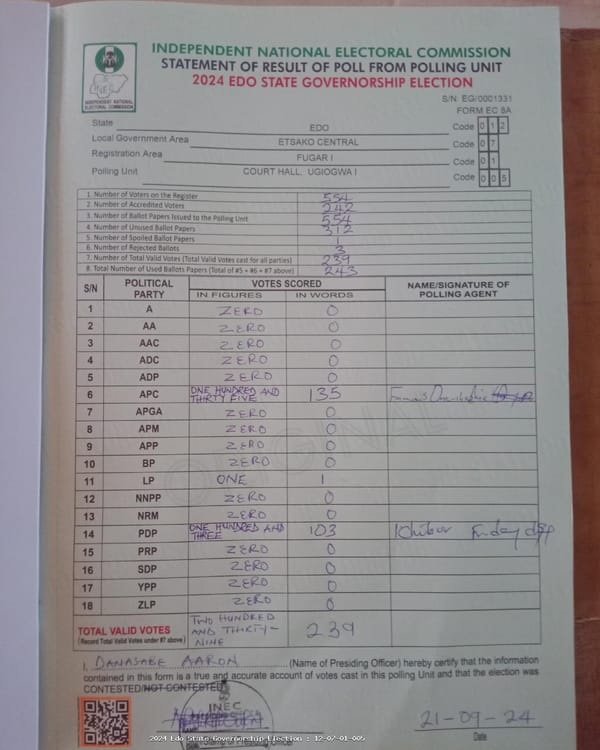 INEC
INDEPENDENT NATIONAL
ELECTORAL COMMISSION
INDEPENDENT NATIONAL ELECTORAL COMMISSION
STATEMENT OF RESULT OF POLL FROM POLLING UNIT
2024 EDO STATE GOVERNORSHIP ELECTION
S/N EG/0001331
FORM EC 8A
State EDO Code 0 1 2
Local Government Area ETSAKO CENTRAL Code 0 7
Registration Area FUGAR I Code 0 1
Polling Unit COURT HALL, UGIOGWA I Code 0 0 5
1. Number of Voters on the Register 554
2. Number of Accredited Voters 242
3. Number of Ballot Papers Issued to the Polling Unit 554
4. Number of Unused Ballot Papers 312
5. Number of Spoiled Ballot Papers 1
6. Number of Rejected Ballots 3
7. Number of Total Valid Votes (Total Valid Votes cast for all parties) 239
8. Total Number of Used Ballots Papers (Total of #5 + #6 + #7 above) 243
S/N POLITICAL PARTY VOTES SCORED NAME/SIGNATURE OF POLLING AGENT
IN FIGURES IN WORDS
1 A ZERO 0
2 AA ZERO 0
3 AAC ZERO 0
4 ADC ZERO 0
5 ADP ZERO 0
6 APC ONE HUNDRED AND THIRTY FIVE 135
7 APGA ZERO 0
8 APM ZERO 0
9 APP ZERO 0
10 BP ZERO 0
11 LP ONE 1
12 NNPP ZERO 0
13 NRM ZERO 0
14 PDP ONE HUNDRED AND THREE 103 Friday
15 PRP ZERO 0
16 SDP ZERO 0
17 YPP ZERO 0
18 ZLP ZERO 0
ORIGINAL
TOTAL VALID VOTES TWO HUNDRED AND THIRTY-NINE 239
(Record Total Valid Votes under #7 above)
I, DANASABE AARON (Name of Presiding Officer) hereby certify that the information
contained in this form is a true and accurate account of votes cast in this polling Unit and that the election was
CONTESTED/NOT CONTESTED
INEC
21-09-24
Date
2024 Edo State Governorship Election : 12-07-01-005